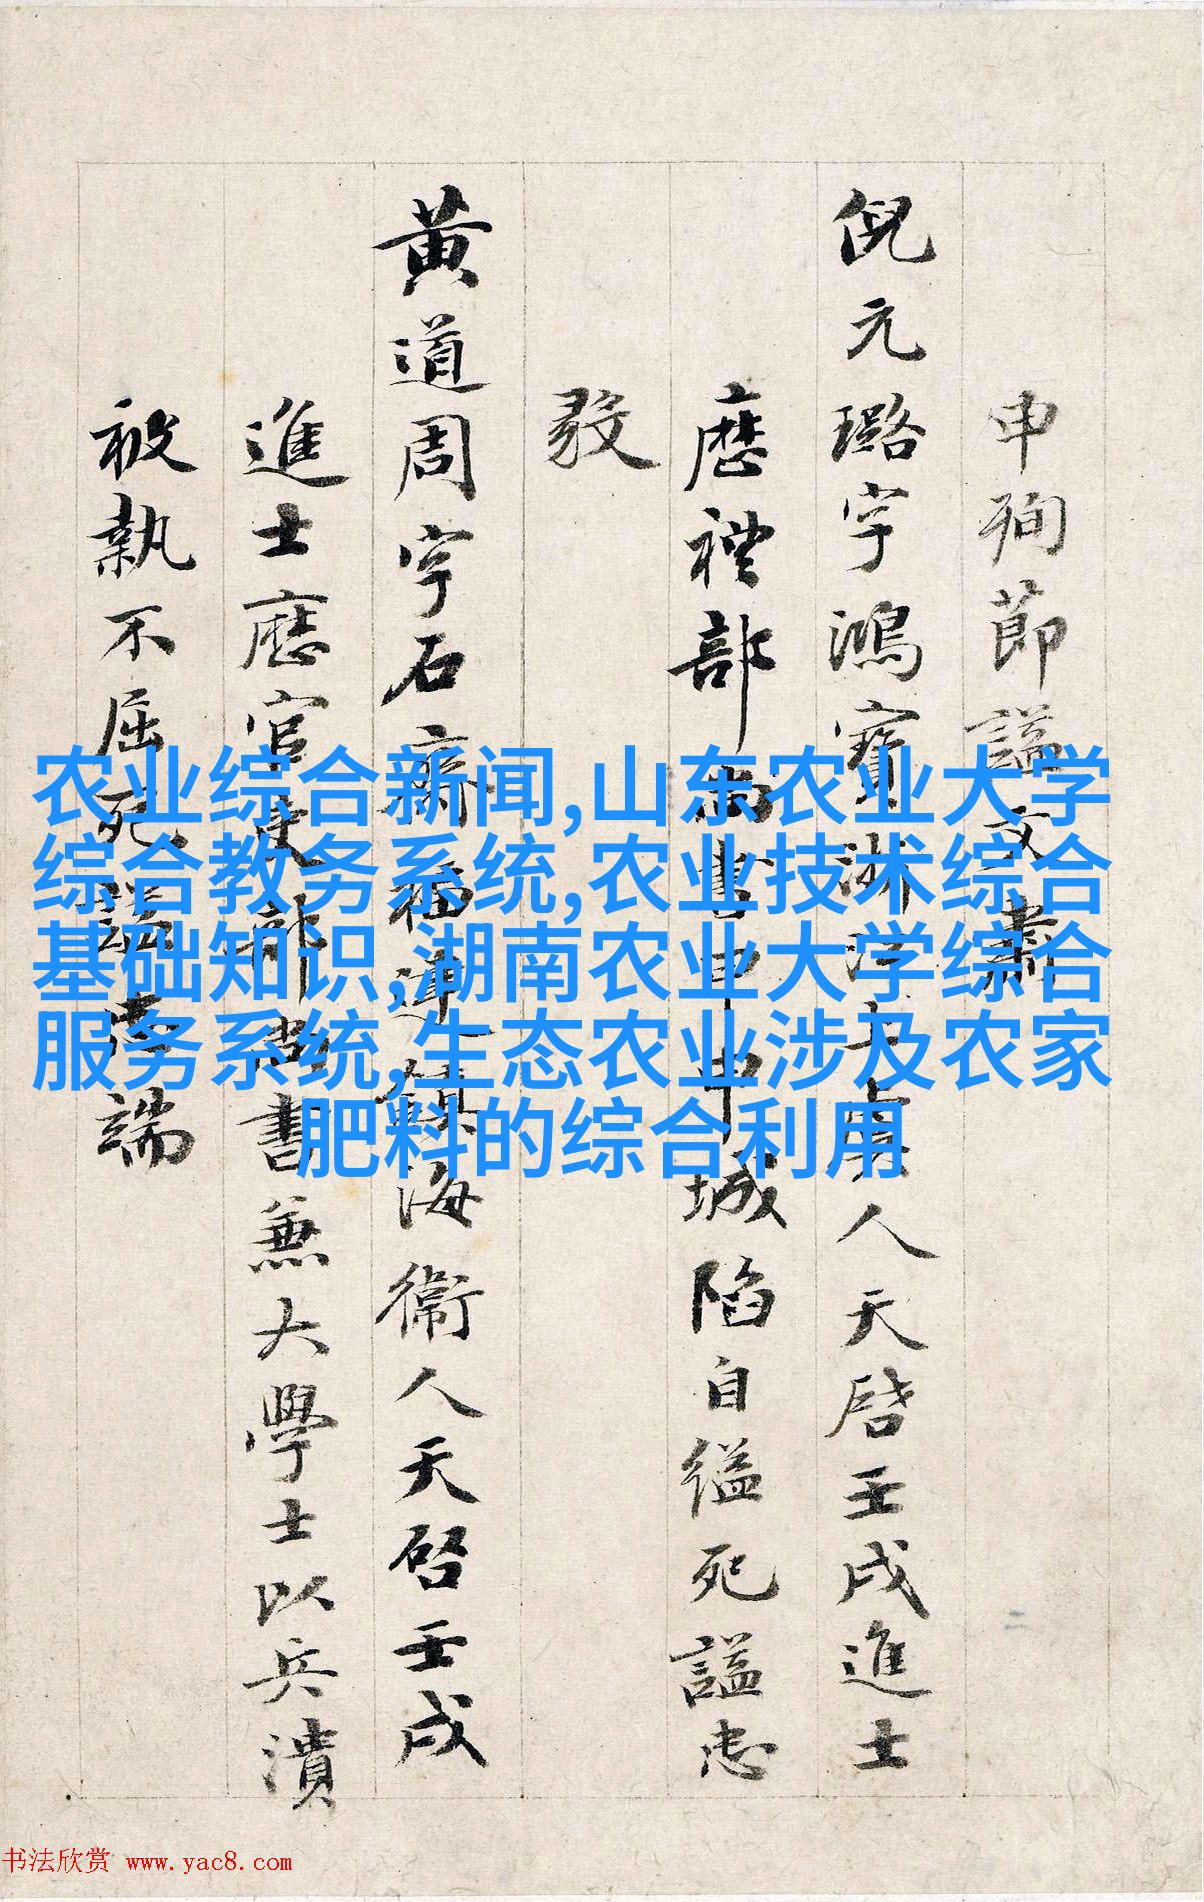 申殉節謚文肅
倪元璐字鴻寶浙江上虞人天啓壬戌進士
歷禮部尚書甲申城陷自縊死謚忠
毅
黄道周字石齋福建鎮海衛人天啓壬戌
進士歷官吏部尚書兼大學士以兵潰
被執不屈死謚忠端
农业综合新闻,山东农业大学
综合教务系统,农业技术综合
基础知识,湖南农业大学综合
服务系统,生态农业涉及农家
肥料的综合利用
书法欣赏 www.yac8.com